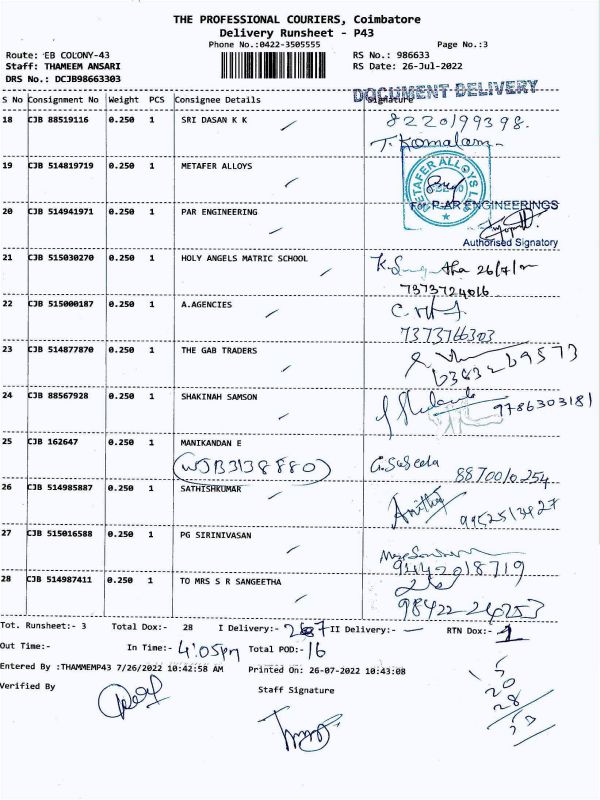 THE PROFESSIONAL COURIERS, Coimbatore
Delivery Runsheet - P43
Phone No.:0422-3505555
Page No.:3
Route: EB COLONY-43
RS No.: 986633
Staff: THAMEEM ANSARI
RS Date: 26-Jul-2022
DRS No.: DCJB98663303
DOCUMENT DELIVERY
S No Consignment No Weight PCS Consignee Details Signature
18 CJB 88519116 0.250 1 SRI DASAN K K 8220199398.
T. Komalam
19 CJB 514819719 0.250 1 METAFER ALLOYS
METAFER ALLOYS
20 CJB 514941971 0.250 1 PAR ENGINEERING
For P-AR ENGINEERINGS
Authorised Signatory
21 CJB 515030270 0.250 1 HOLY ANGELS MATRIC SCHOOL
7373724016
22 CJB 515000187 0.250 1 A.AGENCIES
7373766303
23 CJB 514877870 0.250 1 THE GAB TRADERS
24 CJB 88567928 0.250 1 SHAKINAH SAMSON 9786303181
25 CJB 162647 0.250 1 MANIKANDAN E
G. Suseela
26 CJB 514985887 0.250 1 SATHISHKUMAR
27 CJB 515016588 0.250 1 PG SIRINIVASAN
9442018719
28 CJB 514987411 0.250 1 TO MRS S R SANGEETHA
Tot. Runsheet:- 3 Total Dox:- 28 I Delivery:- II Delivery:- RTN Dox:- 1
Out Time:- In Time:- 4:05pm Total POD:- 16
Entered By :THAMMEMP43 7/26/2022 10:42:58 AM Printed On: 26-07-2022 10:43:08
Verified By
Staff Signature
5
20
28